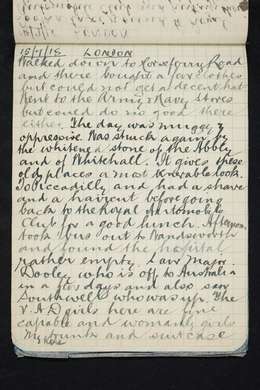 15/11/15 LONDON
Walked down to Horseferry Road
and there bought a few clothes
but could not get a decent hat
Went to the Army & Navy Stores
but could do no good there
either. The day was muggy &
oppressive. Was struck again by
the whitened stone of the Abbey
and of Whitehall. It gives these
old places a most venerable look.
To Piccadilly and had a shave
and a haircut before going
back to the Royal Automobile
Club for a good lunch. Afternoon
took bus out to Wandsworth
and found the hospital
rather empty. Saw Major
Dooley who is off to Australia
in a few days and also saw
Southwell who was up. The
V.A.D girls here are fine
capable and womanly girls
My trunk and suitcase